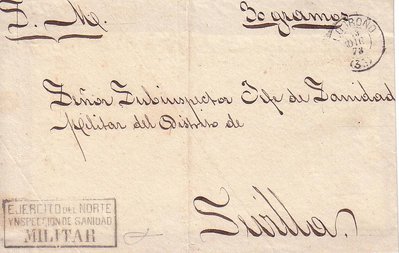 S. M. 30 gramos
LOGROÑO
3
DIC
73
(33)
Señor Subinspector Jefe de Sanidad
Militar del Distrito de
Sevilla.
EJERCITO DEL NORTE
YNSPECCION DE SANIDAD
MILITAR